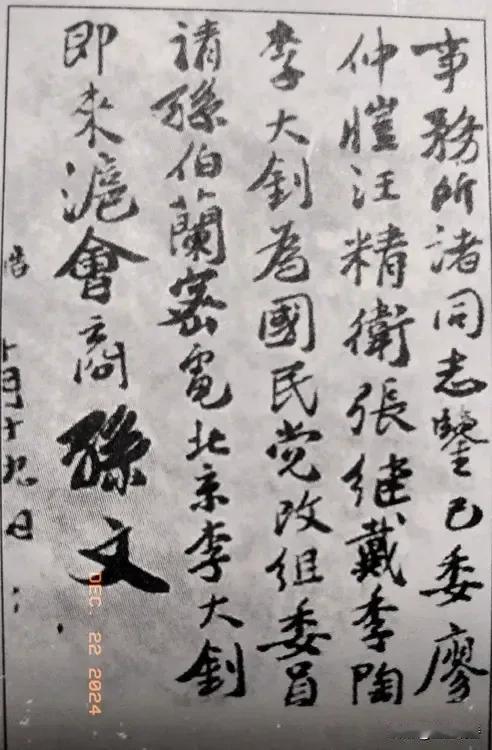 事務所諸同志鑒已委廖
仲愷汪精衛張継戴季陶
李大釗為國民党改組委員
請孫伯蘭密電北京李大釗
即來滬會商孫文
十月十九日
DEC. 22 2024